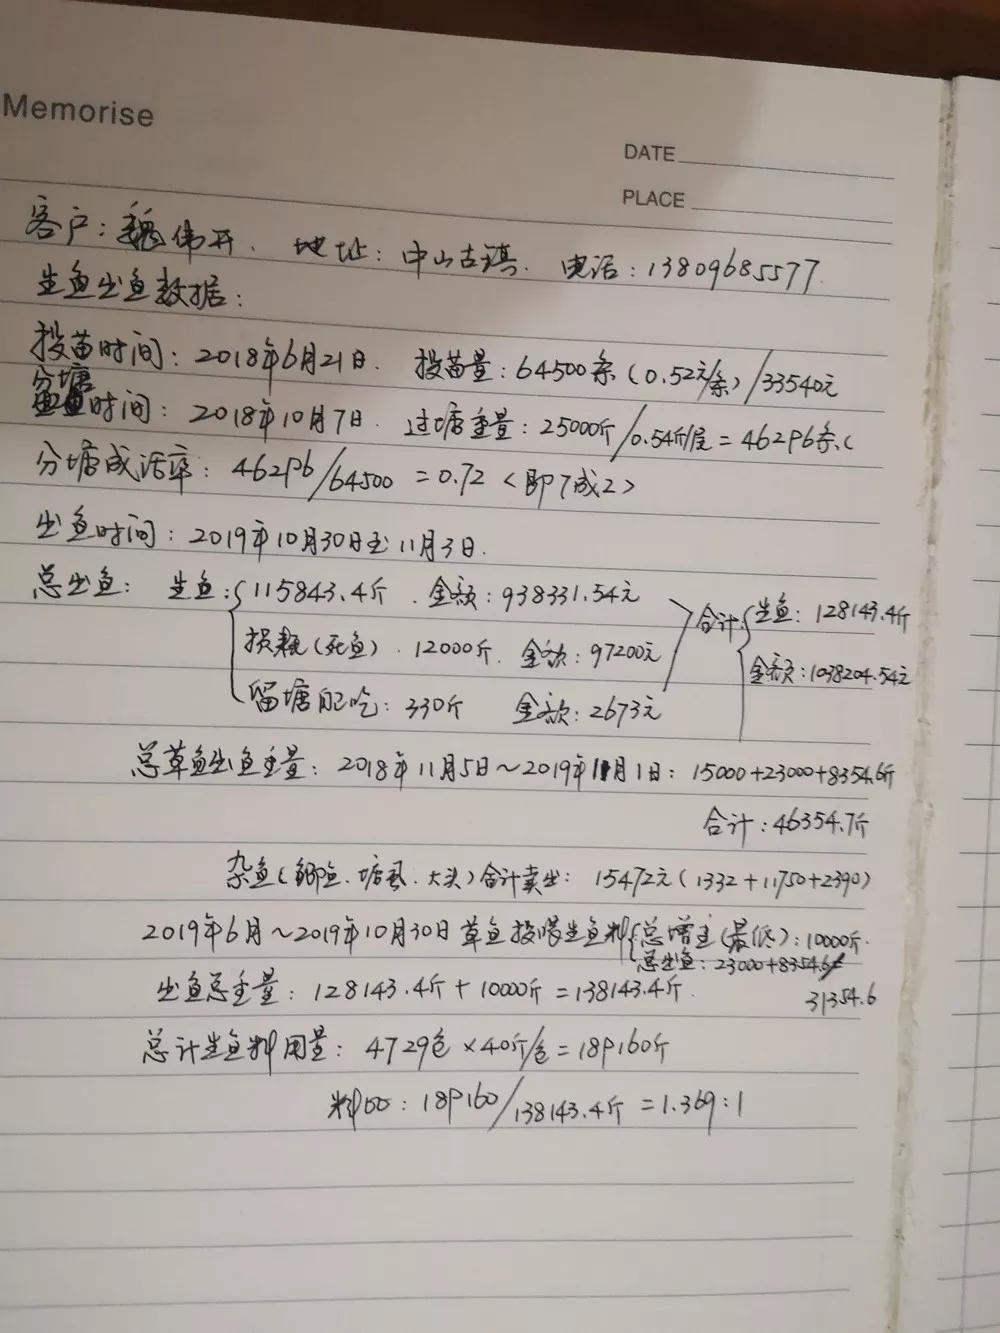 Memorise
DATE
PLACE
客户：魏伟开. 地址：中山古镇. 电话：13809685577.
生鱼出鱼数据：
投苗时间：2018年6月21日. 投苗量：64500条（0.52元/条）/33540元
分塘
时间：2018年10月7日. 过塘重量：25000斤/0.54斤/尾=46296条（
分塘成活率：46296/64500=0.72＜即7成2＞
出鱼时间：2019年10月30日至11月3日.
总出鱼：生鱼：{115843.4斤. 金额：938331.54元
损耗（死鱼）. 12000斤. 金额：97200元
留塘自己吃：330斤 金额：2673元
合计：{生鱼：128143.4斤
金额：1038204.54元
总草鱼出鱼重量：2018年11月5日~2019年11月1日：15000+23000+8354.6斤
合计：46354.7斤
杂鱼（鲫鱼、塘虱、大头）合计卖出：15472元（1332+11750+2390）
2019年6月~2019年10月30日草鱼投喂生鱼料{总增重（最低）：10000斤.
总出鱼：23000+8354.6=
31354.6
出鱼总重量：128143.4斤+10000斤=138143.4斤.
总计生鱼料用量：4729包×40斤/包=189160斤
料比：189160/138143.4斤=1.369:1